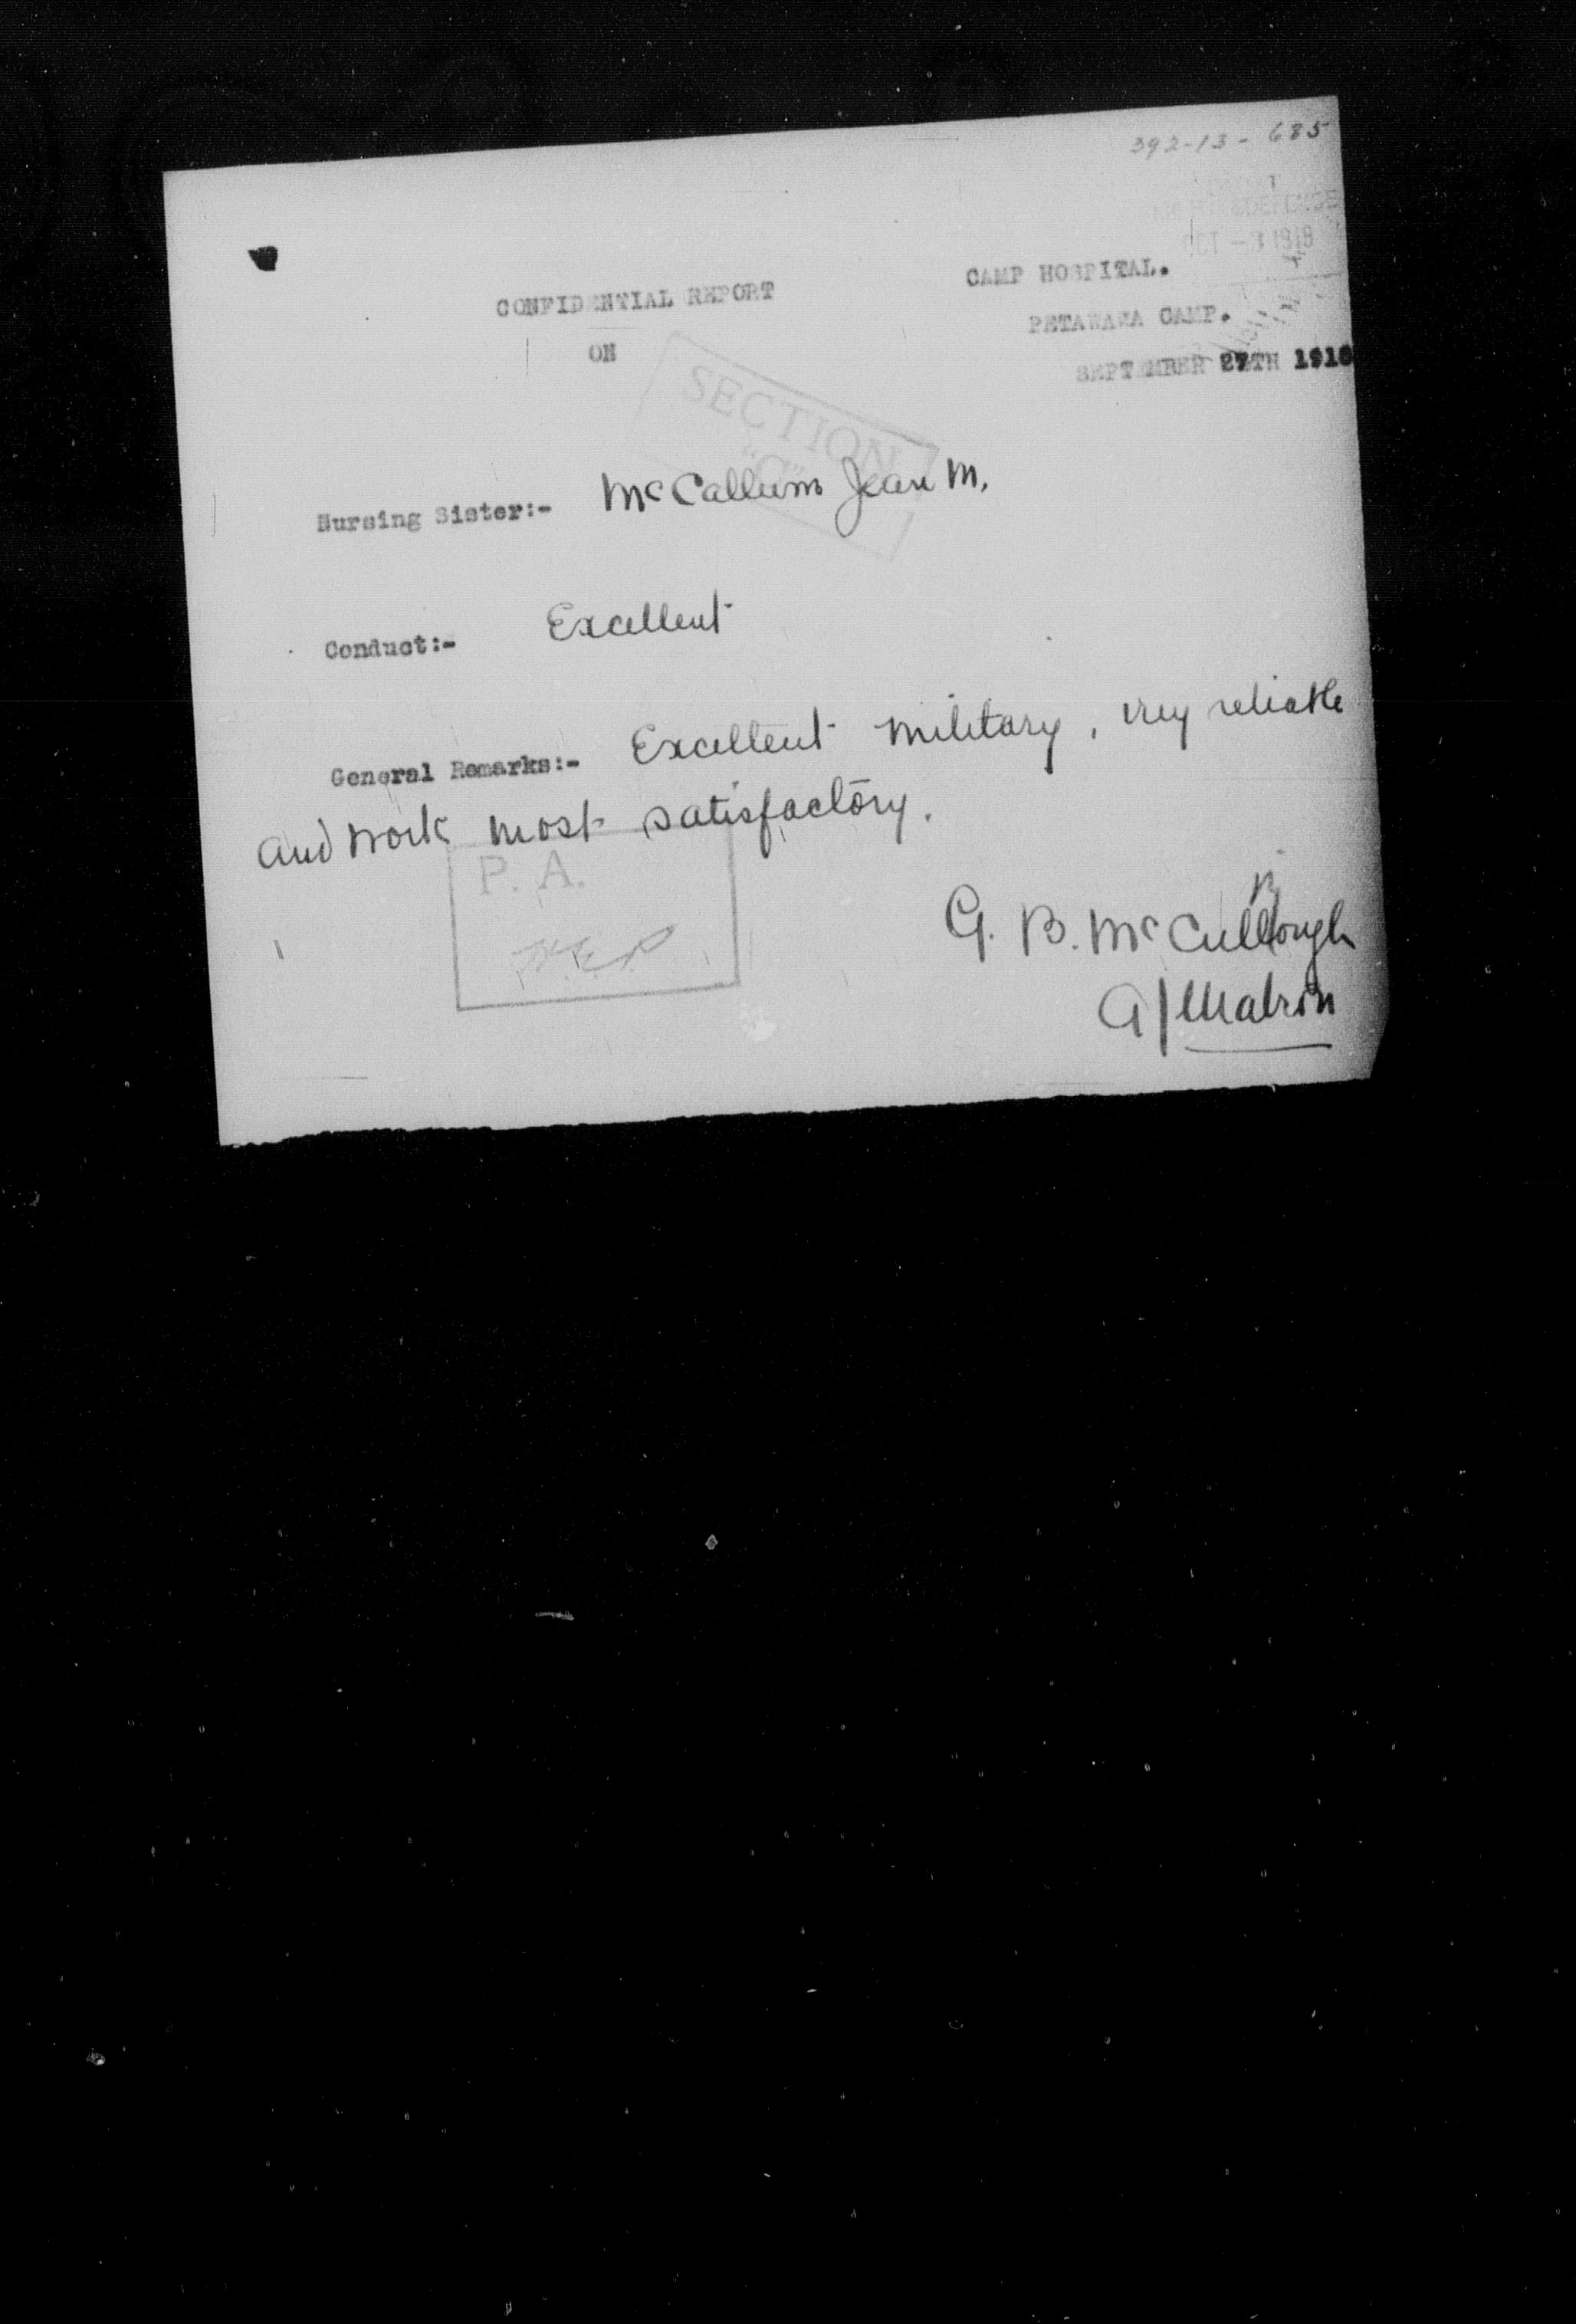 392-13-685
OCT -3 1918
CAMP HOSPITAL.
CONFIDENTIAL REPORT
PETAWAWA CAMP.
ON
SEPTEMBER 27TH 1918
SECTION
"C"
Nursing Sister:- McCallum Jean M.
Conduct:- Excellent
General Remarks:- Excellent military, very reliable
and work most satisfactory.
P. A.
G. B. McCullough
A/Matron